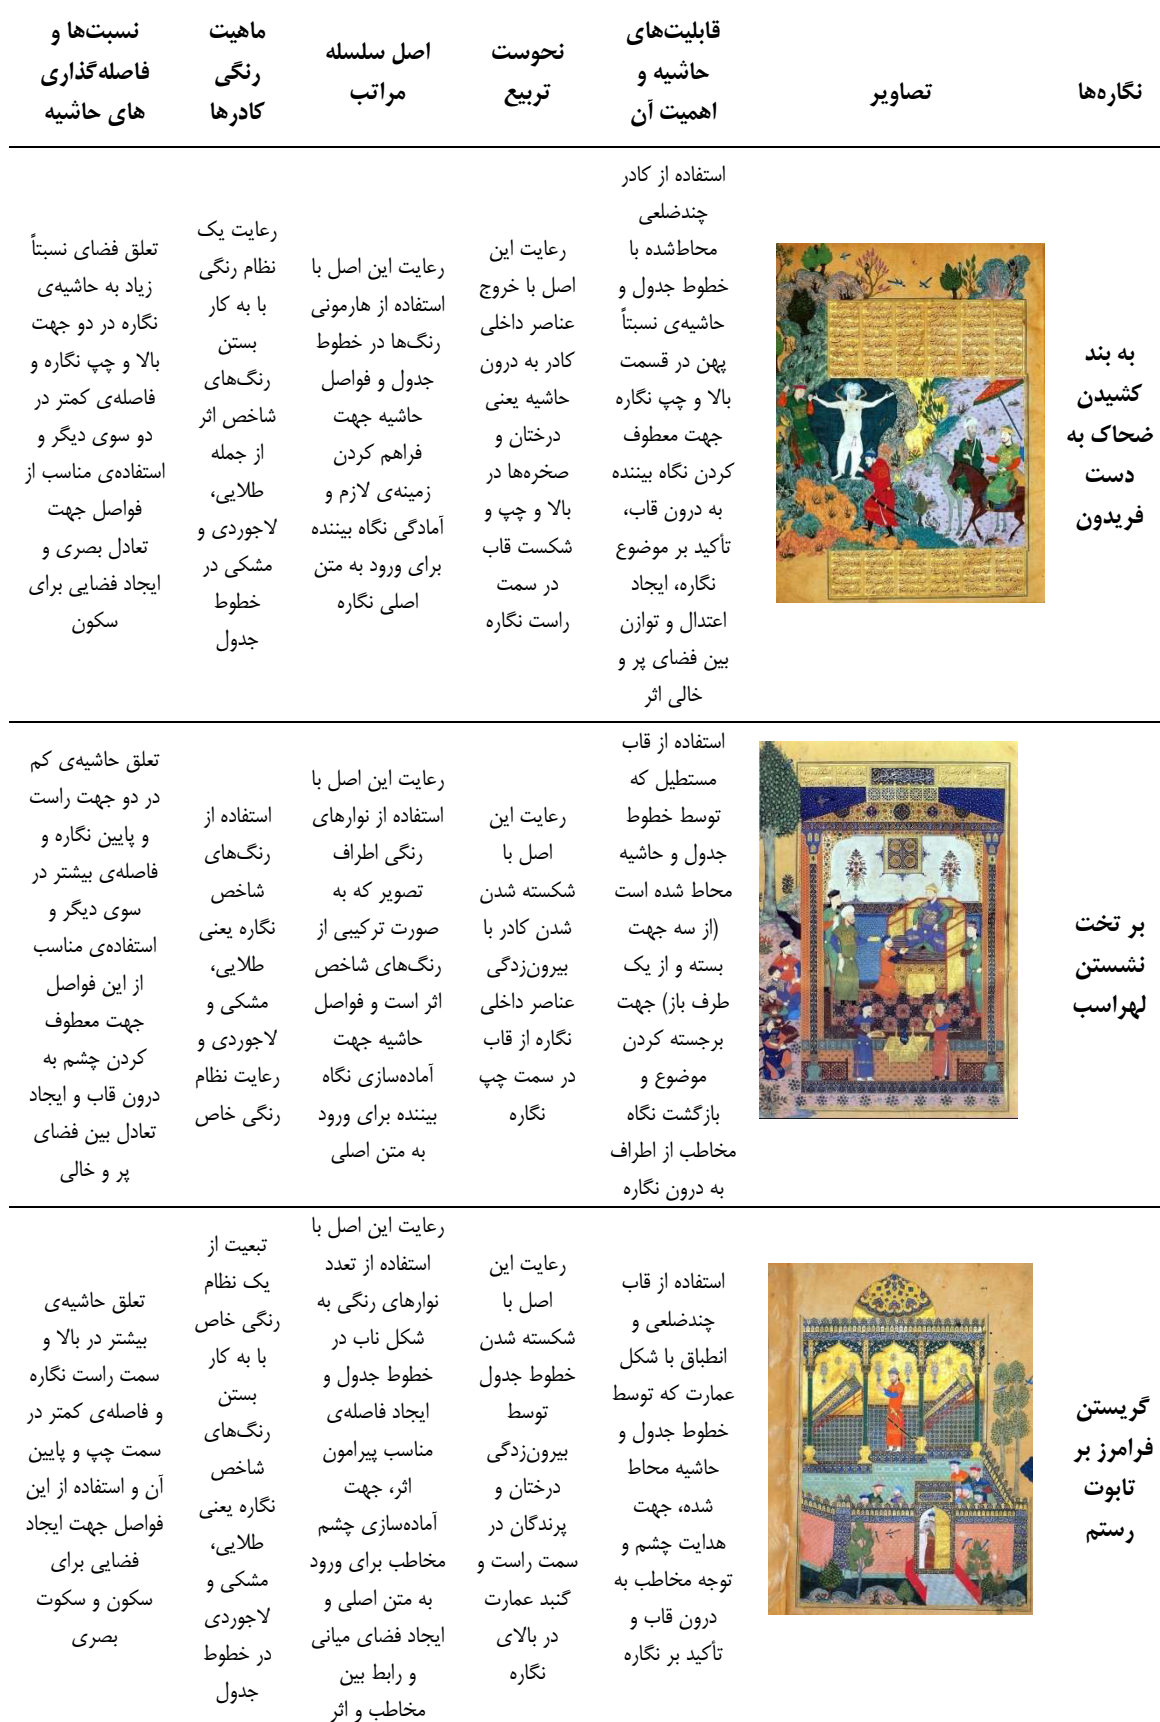 نگاره‌ها
تصاویر
قابلیت‌های
حاشیه و
اهمیت آن
نحوست
تربیع
اصل سلسله
مراتب
ماهیت
رنگی
کادرها
نسبت‌ها و
فاصله‌گذاری
های حاشیه
به بند
کشیدن
ضحاک به
دست
فریدون
استفاده از کادر
چندضلعی
محاط‌شده با
خطوط جدول و
حاشیه‌ی نسبتاً
پهن در قسمت
بالا و چپ نگاره
جهت معطوف
کردن نگاه بیننده
به درون قاب،
تأکید بر موضوع
نگاره، ایجاد
اعتدال و توازن
بین فضای پر و
خالی اثر
رعایت این
اصل با خروج
عناصر داخلی
کادر به درون
حاشیه یعنی
درختان و
صخره‌ها در
بالا و چپ و
شکست قاب
در سمت
راست نگاره
رعایت این اصل با
استفاده از هارمونی
رنگ‌ها در خطوط
جدول و فواصل
حاشیه جهت
فراهم کردن
زمینه‌ی لازم و
آمادگی نگاه بیننده
برای ورود به متن
اصلی نگاره
رعایت یک
نظام رنگی
با به کار
بستن
رنگ‌های
شاخص اثر
از جمله
طلایی،
لاجوردی و
مشکی در
خطوط
جدول
تعلق فضای نسبتاً
زیاد به حاشیه‌ی
نگاره در دو جهت
بالا و چپ نگاره و
فاصله‌ی کمتر در
دو سوی دیگر و
استفاده‌ی مناسب از
فواصل جهت
تعادل بصری و
ایجاد فضایی برای
سکون
بر تخت
نشستن
لهراسب
استفاده از قاب
مستطیل که
توسط خطوط
جدول و حاشیه
محاط شده است
(از سه جهت
بسته و از یک
طرف باز) جهت
برجسته کردن
موضوع و
بازگشت نگاه
مخاطب از اطراف
به درون نگاره
رعایت این
اصل با
شکسته شدن
شدن کادر با
بیرون‌زدگی
عناصر داخلی
نگاره از قاب
در سمت چپ
نگاره
رعایت این اصل با
استفاده از نوارهای
رنگی اطراف
تصویر که به
صورت ترکیبی از
رنگ‌های شاخص
اثر است و فواصل
حاشیه جهت
آماده‌سازی نگاه
بیننده برای ورود
به متن اصلی
استفاده از
رنگ‌های
شاخص
نگاره یعنی
طلایی،
مشکی و
لاجوردی و
رعایت نظام
رنگی خاص
تعلق حاشیه‌ی کم
در دو جهت راست
و پایین نگاره و
فاصله‌ی بیشتر در
سوی دیگر و
استفاده‌ی مناسب
از این فواصل
جهت معطوف
کردن چشم به
درون قاب و ایجاد
تعادل بین فضای
پر و خالی
گریستن
فرامرز بر
تابوت
رستم
استفاده از قاب
چندضلعی و
انطباق با شکل
عمارت که توسط
خطوط جدول و
حاشیه محاط
شده، جهت
هدایت چشم و
توجه مخاطب به
درون قاب و
تأکید بر نگاره
رعایت این
اصل با
شکسته شدن
خطوط جدول
توسط
بیرون‌زدگی
درختان و
پرندگان در
سمت راست و
گنبد عمارت
در بالای
نگاره
رعایت این اصل با
استفاده از تعدد
نوارهای رنگی به
شکل ناب در
خطوط جدول و
ایجاد فاصله‌ی
مناسب پیرامون
اثر، جهت
آماده‌سازی چشم
مخاطب برای ورود
به متن اصلی و
ایجاد فضای میانی
و رابط بین
مخاطب و اثر
تبعیت از
یک نظام
رنگی خاص
با به کار
بستن
رنگ‌های
شاخص
نگاره یعنی
طلایی،
مشکی و
لاجوردی
در خطوط
جدول
تعلق حاشیه‌ی
بیشتر در بالا و
سمت راست نگاره
و فاصله‌ی کمتر در
سمت چپ و پایین
آن و استفاده از این
فواصل جهت ایجاد
فضایی برای
سکون و سکوت
بصری